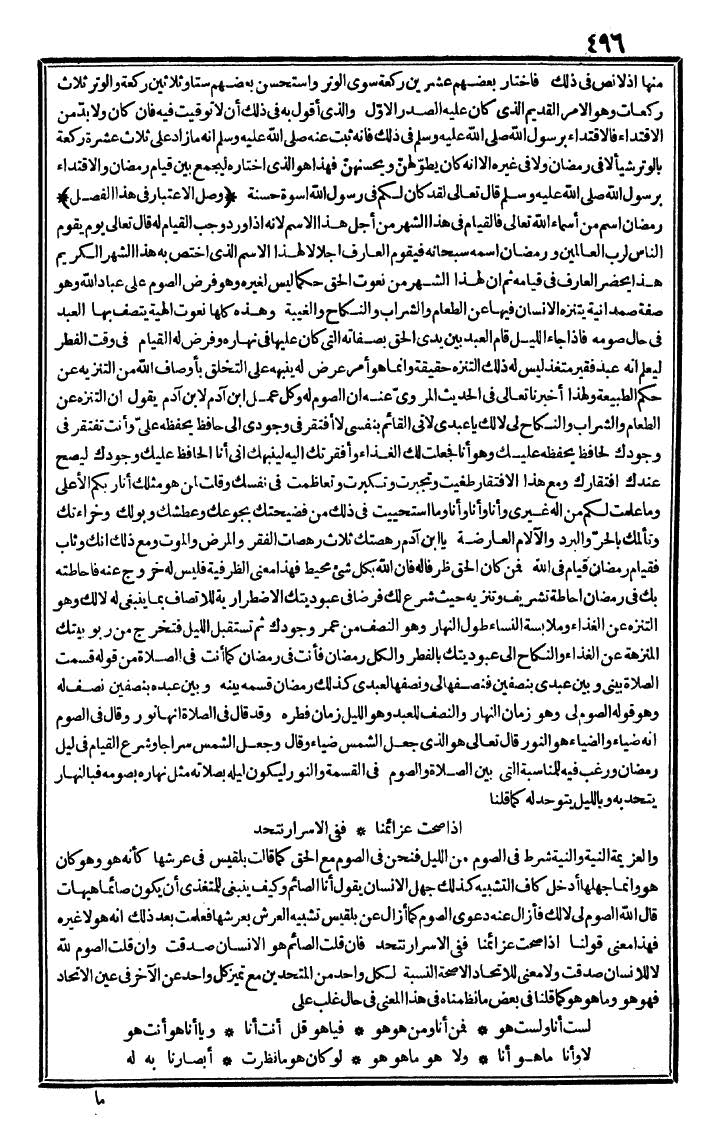 ٤٩٦
منها اذ لا نص فى ذلك فاختار بعضهم عشرين ركعة سوى الوتر واستحسن بعضهم ستا وثلاثين ركعة والوتر ثلاث
ركعات وهو الامر القديم الذى كان عليه الصدر الاوّل والذى أقول به فى ذلك أن لا توقيت فيه فان كان ولا بدّ من
الاقتداء فالاقتداء برسول الله صلى الله عليه وسلم فى ذلك فانه ثبت عنه صلى الله عليه وسلم انه ما زاد على ثلاث عشرة ركعة
بالوتر شيأ لا فى رمضان ولا فى غيره الا انه كان يطوّلهنّ ويحسنهنّ فهذا هو الذى اختاره ليجمع بين قيام رمضان والاقتداء
برسول الله صلى الله عليه وسلم قال تعالى لقد كان لكم فى رسول الله اسوة حسنة *(وصل الاعتبار فى هذا الفصل)*
رمضان اسم من أسماء الله تعالى فالقيام فى هذا الشهر من أجل هذا الاسم لانه اذا ورد وجب القيام له قال تعالى يوم يقوم
الناس لرب العالمين ورمضان اسمه سبحانه فيقوم العارف اجلالا لهذا الاسم الذى اختص به هذا الشهر الكريم
هذا يحضر العارف فى قيامه ثم ان لهذا الشهر من نعوت الحق حكما ليس لغيره وهو فرض الصوم على عباد الله وهو
صفة صمدانية يتنزه الانسان فيها عن الطعام والشراب والنكاح والغيبة وهذه كلها نعوت الهية يتصف بها العبد
فى حال صومه فاذا جاء الليل قام العبد بين يدى الحق بصفاته التى كان عليها فى نهاره وفرض له القيام فى وقت الفطر
ليعلم انه عبد فقير متغذ ليس له ذلك التنزه حقيقة وانما هو أمر عرض له ينبهه على التخلق بأوصاف الله من التنزيه عن
حكم الطبيعة ولهذا أخبرنا تعالى فى الحديث المروىّ عنه ان الصوم له وكل عمل ابن آدم لابن آدم يقول ان التنزه عن
الطعام والشراب والنكاح لى لا لك يا عبدى لانى القائم بنفسى لا أفتقر فى وجودى الى حافظ يحفظه علىّ وأنت تفتقر فى
وجودك لحافظ يحفظه عليك وهو أنا فجعلت لك الغذاء وأفقرتك اليه لينبهك انى أنا الحافظ عليك وجودك ليصح
عندك افتقارك ومع هذا الافتقار طغيت وتجبرت وتكبرت وتعاظمت فى نفسك وقلت لمن هو مثلك أنا ربكم الأعلى
وما علمت لكم من اله غيرى وأنا وأنا وأنا وما استحييت فى ذلك من فضيحتك بجوعك وعطشك وبولك وخراءتك
وتألمك بالحرّ والبرد والآلام العارضة يا ابن آدم رهصتك ثلاث رهصات الفقر والمرض والموت ومع ذلك انك وثاب
فقيام رمضان قيام فى الله فمن كان الحق ظرفا له فان الله بكل شئ محيط فهذا معنى الظرفية فليس له خروج عنه فاحاطته
بك فى رمضان احاطة تشريف وتنزيه حيث شرع لك فرضا فى عبوديتك الاضطرارية للاتصاف بما ينبغى له لا لك وهو
التنزه عن الغذاء وملابسة النساء طول النهار وهو النصف من عمر وجودك ثم تستقبل الليل فتخرج من ربوبيتك
المنزهة عن الغذاء والنكاح الى عبوديتك بالفطر والكل رمضان فأنت فى رمضان كما أنت فى الصلاة من قوله قسمت
الصلاة بينى وبين عبدى بنصفين فنصفها لى ونصفها لعبدى كذلك رمضان قسمه بينه وبين عبده بنصفين نصف له
وهو قوله الصوم لى وهو زمان النهار والنصف للعبد وهو الليل زمان فطره وقد قال فى الصلاة انها نور وقال فى الصوم
انه ضياء والضياء هو النور قال تعالى هو الذى جعل الشمس ضياء وقال وجعل الشمس سراجا وشرع القيام فى ليل
رمضان ورغب فيه للمناسبة التى بين الصلاة والصوم فى القسمة والنور ليكون ليله بصلاته مثل نهاره بصومه فبالنهار
يتحد به وبالليل يتوحد له كما قلنا
اذا صحت عزائمنا * ففى الاسرار نتحد
والعزيمة النية والنية شرط فى الصوم من الليل فنحن فى الصوم مع الحق كما قالت بلقيس فى عرشها كأنه هو وهو كان
هو وانما جهلها أدخل كاف التشبيه كذلك جهل الانسان يقول أنا الصائم وكيف ينبغى للمتغذى أن يكون صائما هيهات
قال الله الصوم لى لا لك فأزال عنه دعوى الصوم كما أزال عن بلقيس تشبيه العرش بعرشها فعلمت بعد ذلك انه هو لا غيره
فهذا معنى قولنا اذا صحت عزائمنا ففى الاسرار نتحد فان قلت الصائم هو الانسان صدقت وان قلت الصوم لله
لا للانسان صدقت ولا معنى للاتحاد الا صحة النسبة لكل واحد من المتحدين مع تميز كل واحد عن الآخر فى عين الاتحاد
فهو هو وما هو هو كما قلنا فى بعض ما نظمناه فى هذا المعنى فى حال غلب على
لست أنا ولست هو * فمن أنا ومن هو هو * فيا هو قل أنت أنا * ويا أنا هو أنت هو
لا وأنا ما هو أنا * ولا هو ما هو هو * لو كان هو ما نظرت * أبصارنا به له
ما